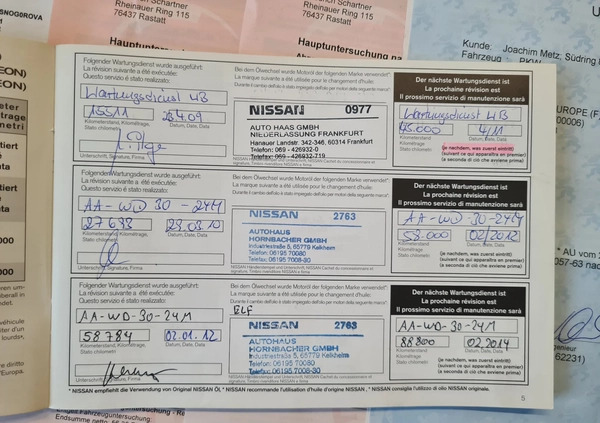 Schartner
Rheinauer Ring 115
76437 Rastatt
Rheinauer Ring 115
76437 Rastatt
Hauptuntersuchung
Hauptuntersuchung na
Kunde: Joachim Metz, Südring
Folgender Wartungsdienst wurde ausgeführt:
La révision suivante a été exécutée:
Questo servizio è stato realizzato:
Wartungsdienst WB
15511
23.4.09
Kilometerstand, Kilométrage,
Stato chilometri
Datum, Date, Data
Unterschrift, Signature, Firma
Bei dem Ölwechsel wurde Motoröl der folgenden Marke verwendet*.
La marque suivante a été utilisée pour le changement d'huile:
Durante il cambio dell'olio è stato impiegato dell'olio per motori della seguente marca*:
NISSAN 0977
AUTO HAAS GMBH
NIEDERLASSUNG FRANKFURT
Hanauer Landstr. 342-346, 60314 Frankfurt
Telefon: 069 - 426932-0
Telefax: 069 - 426932-719
Der nächste Wartungsdienst ist
La prochaine révision est
Il prossimo servizio di manutenzione sarà
Wartungsdienst WB
45.000
4/11
Kilometerstand
Kilométrage
Stato chilometri
Datum, Date, Data
(je nachdem, was zuerst eintritt)
(suivant ce qui apparaîtra en premier)
(a seconda di ciò che avviene prima)
Folgender Wartungsdienst wurde ausgeführt:
La révision suivante a été exécutée:
Questo servizio è stato realizzato:
AA-WD 30-24M
27633
29.03.10
Kilometerstand, Kilométrage,
Stato chilometri
Datum, Date, Data
Unterschrift, Signature, Firma
NISSAN 2763
AUTOHAUS
HORNBACHER GMBH
Industriestraße 5, 65779 Kelkheim
Telefon 06195 70080
Telefax 06195 7008-30
Der nächste Wartungsdienst ist
La prochaine révision est
Il prossimo servizio di manutenzione sarà
AA-WD-30-24M
58.000
02/2012
Kilometerstand
Kilométrage
Stato chilometri
Datum, Date, Data
(je nachdem, was zuerst eintritt)
(suivant ce qui apparaîtra en premier)
(a seconda di ciò che avviene prima)
Folgender Wartungsdienst wurde ausgeführt:
La révision suivante a été exécutée:
Questo servizio è stato realizzato:
AA-WD-30-24M
58784
02.01.12
Kilometerstand, Kilométrage,
Stato chilometri
Datum, Date, Data
Unterschrift, Signature, Firma
ELF
NISSAN 2763
AUTOHAUS
HORNBACHER GMBH
Industriestraße 5, 65779 Kelkheim
Telefon 06195 70080
Telefax 06195 7008-30
Der nächste Wartungsdienst ist
La prochaine révision est
Il prossimo servizio di manutenzione sarà
AA-WD-30-24M
88800
02.2014
Kilometerstand
Kilométrage
Stato chilometri
Datum, Date, Data
(je nachdem, was zuerst eintritt)
(suivant ce qui apparaîtra en premier)
(a seconda di ciò che avviene prima)
* NISSAN empfiehlt die Verwendung von Original NISSAN ÖL * NISSAN recommande l'utilisation d'huile d'origine NISSAN, * NISSAN consiglia l'utilizzo di olio NISSAN originale.
5